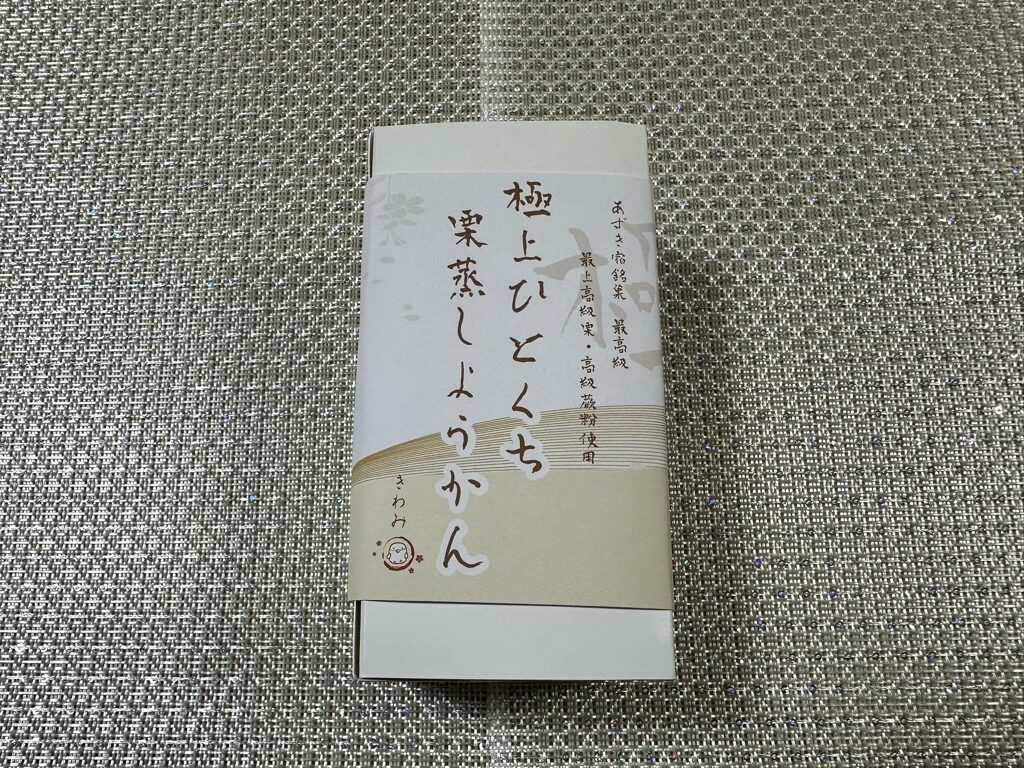 あずき宿銘菓　最高級
最上高級栗・高級蕨粉使用
極上ひとくち
栗蒸しようかん
きわみ